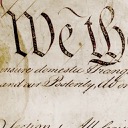 We th
insure domestic Tranq
and our Posterity, do or
Section. All